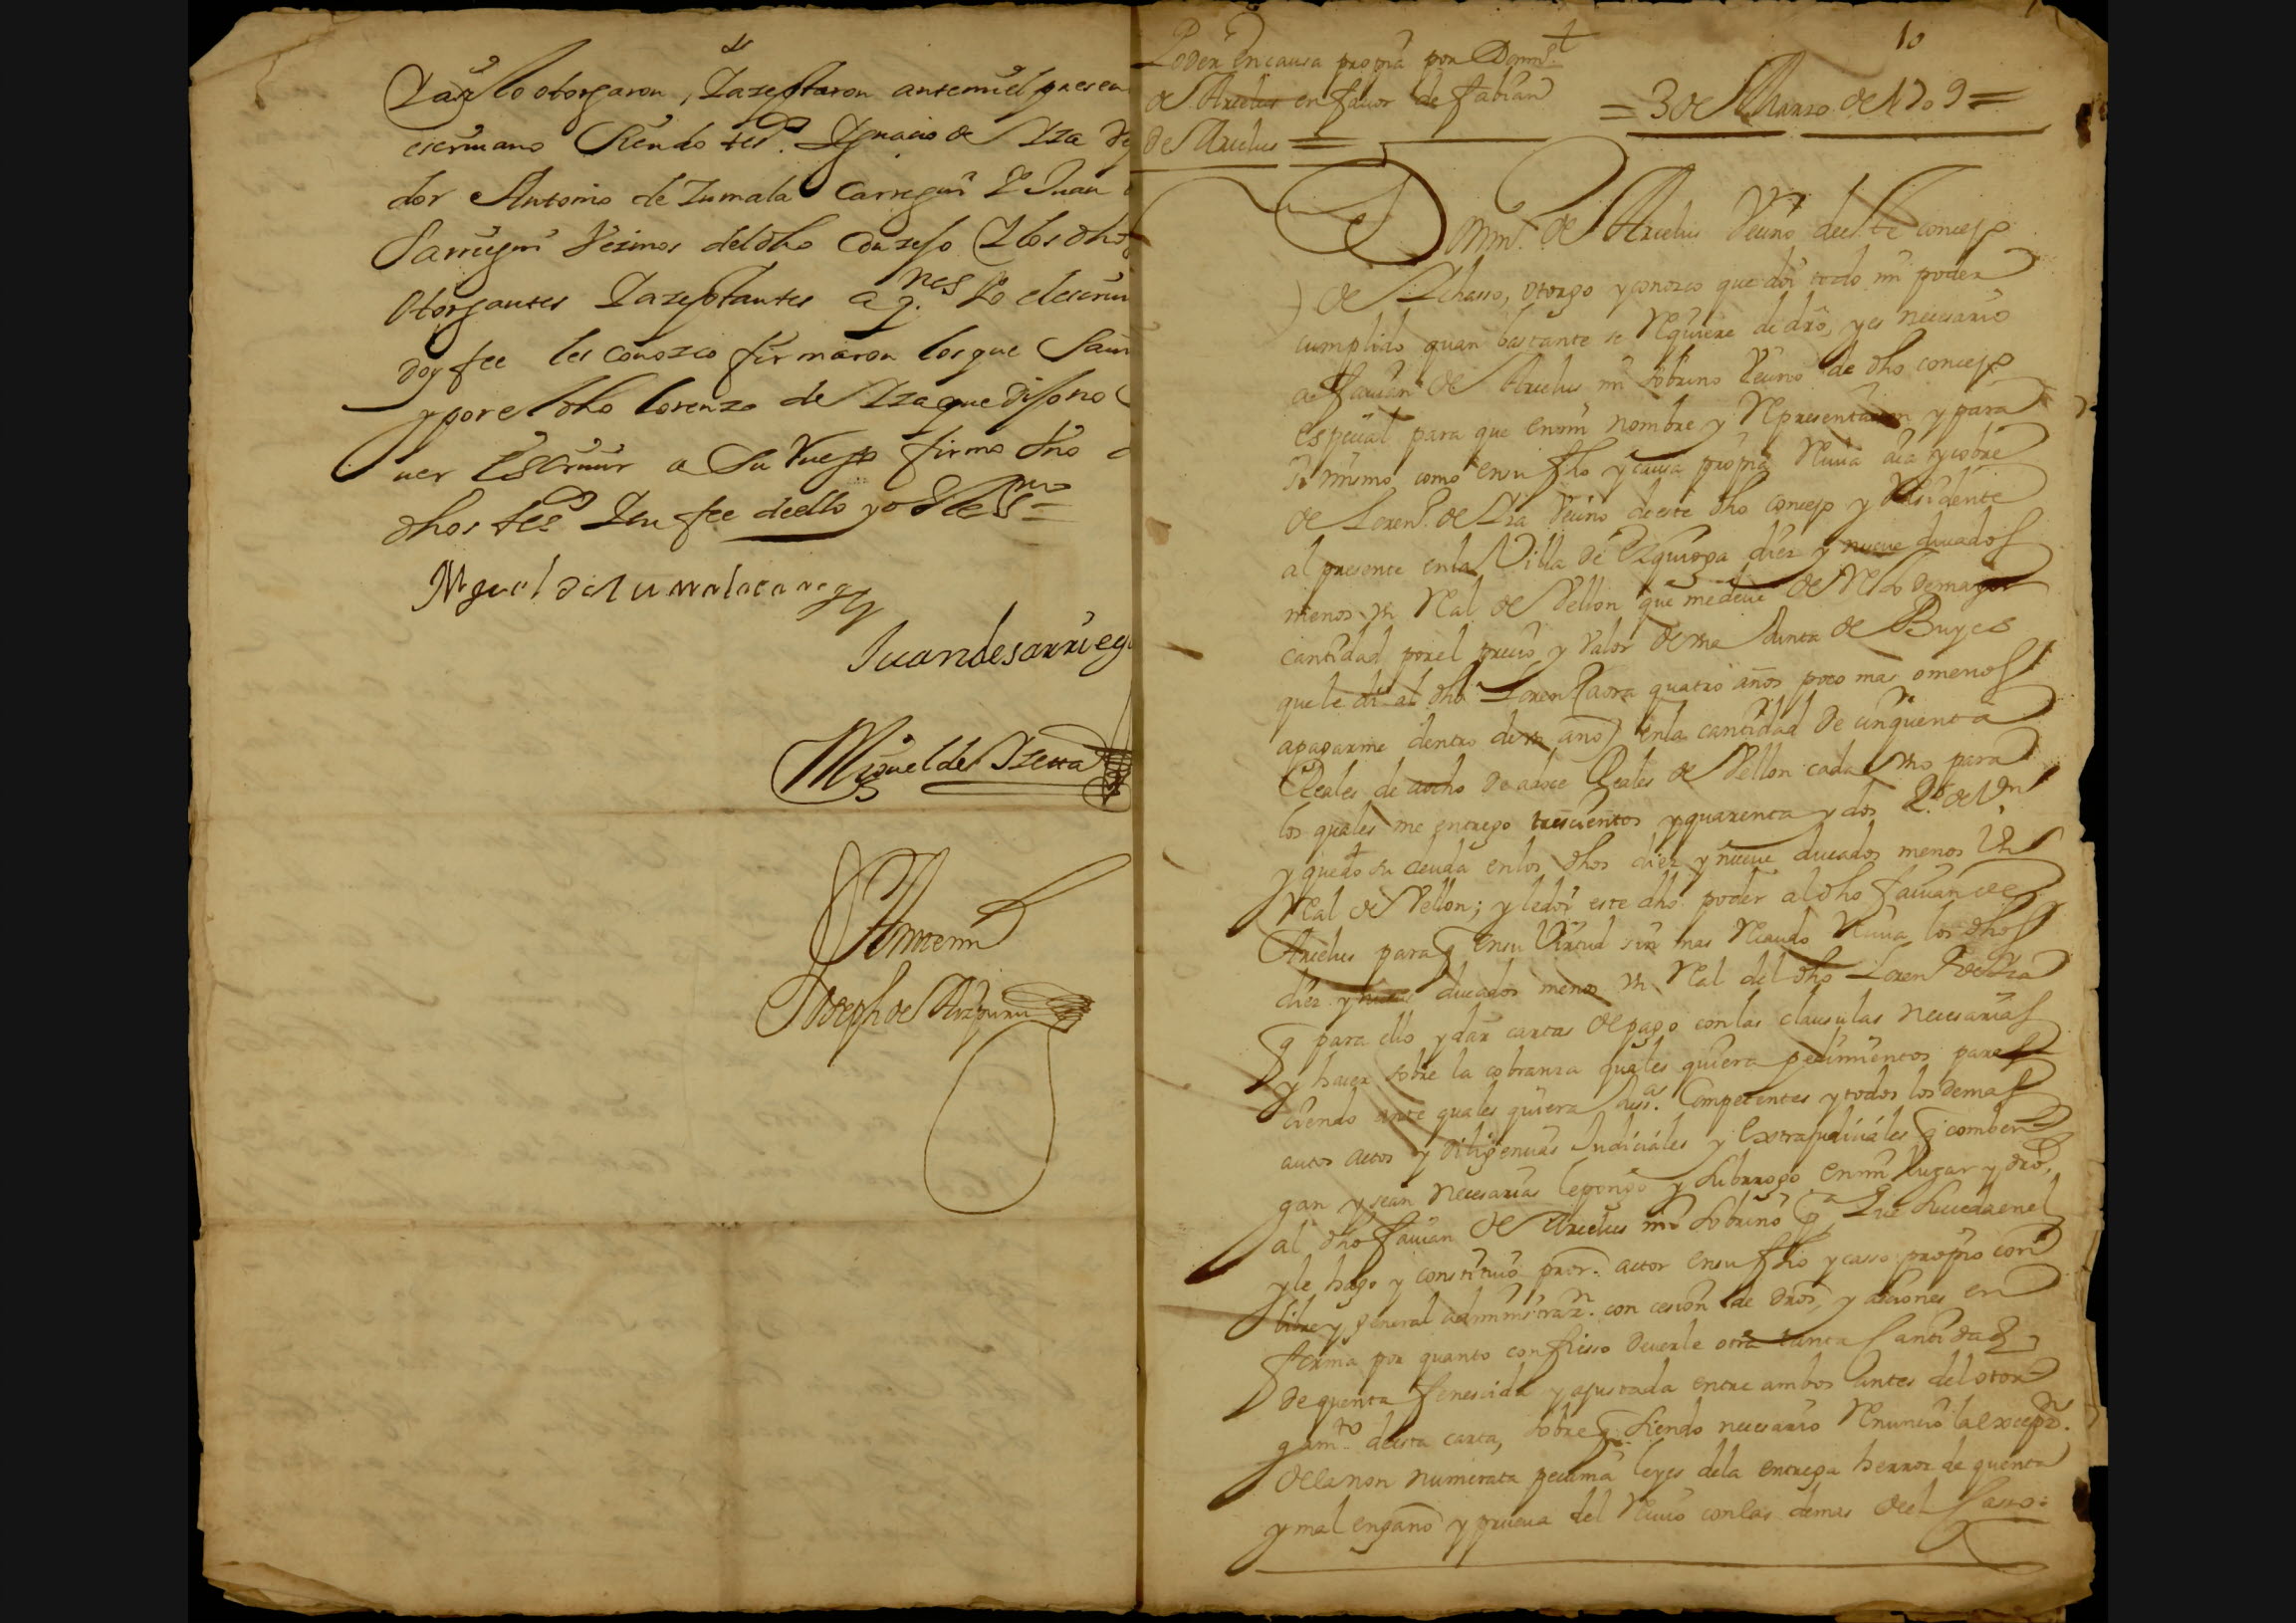 Y assi lo otorgaron, Y azeptaron antemi el presen
escriuano siendo tesº. Ygnacio de Yza
dor Antonio de Zumala Carregui Y Juan
Sarriegui Vezinos del dho Conzejo Y los dhos
Otorgantes Y azeptantes a q.nes Yo el escriu
doy fee les conozco firmaron los que Sauian
y por el dho Lorenzo de Yza que dijo no
uer Escriuir a Su Ruego firmo Vno
dhos tesº Y en fee de ello yo el essno
Miguel de Zumalacarregy
Juan de sarriegu
Miguel de Yzetta
Ante mi
Joseph de Aizpuru
10
Poder en causa propia por Domi.º
de Arcelus en fauor de fabian
de Arcelus
= 3 de Marzo de 1709 =
Domi.º de Arcelus Vecino de este concejo
de Ychasso, otorgo y conozco que doi todo mi poder
cumplido quan bastante se Requiere de dro, y es necesario
a fauian de Arcelus mi sobrino Vecino de dho concejo
especial para que en mi nombre y Representacion y para
Si mismo como en su fho y causa propia Reciua aia y cobre
de Loren.º de Yza Vecino de este dho concejo y Residente
al presente en la Villa de Ezquioga diez y nueue ducados
menos Vn Real de Vellon que me deue de Resto de mayor
cantidad por el precio y Valor de vna Junta de Bueyes
que le di al dho Loren.º (aora quatro años poco mas o menos
a pagarme dentro de vn año) en la cantidad de cinquenta
Reales de aocho de adoce Reales de Vellon cada Vno para
los quales me entrego trescientos y quarenta y dos R.s de Vn
y quedo su deuda en los dhos diez y nueue ducados menos Vn
Real de Vellon; y le doi este dho poder al dho fauian de
Arcelus para q en su Virtud sin mas Recaudo Reciua los dhos
diez y nueue ducados menos Vn Real del dho Loren.º de Yza
q para ello y dar cartas de pago con las clausulas necesarias
y hacer sobre la cobranza quales quiera pedimientos pares
ciendo ante quales quiera Juss.as Competentes y todos los demas
autos actos y diligencias Judiciales y Extrajudiciales q comben
gan y sean necesarias le pongo y subrrogo en mi lugar y dro,
al dho fauian de Arcelus mi sobrino p.a Que suceda en el
y le hago y constituio pror. actor en su fho y casso propio con
libre y general administraz.n con cesion de dros, y acciones en
forma por quanto confiesso deuerle otra tanta Cantidad
de quenta fenescida y ajustada entre ambos antes del otor
gam.to de esta carta, sobre q siendo necesario Renuncio la excepz.n
de la non numerata pecunia leyes de la entrega herror de quenta
y mal engaño y prueua del Reciuo con las demas de el Casso: